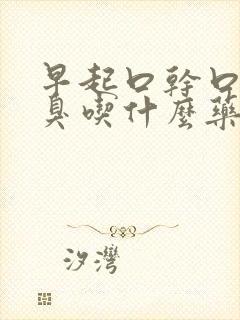 早起口幹口
臭喫什麼藥
汐灣